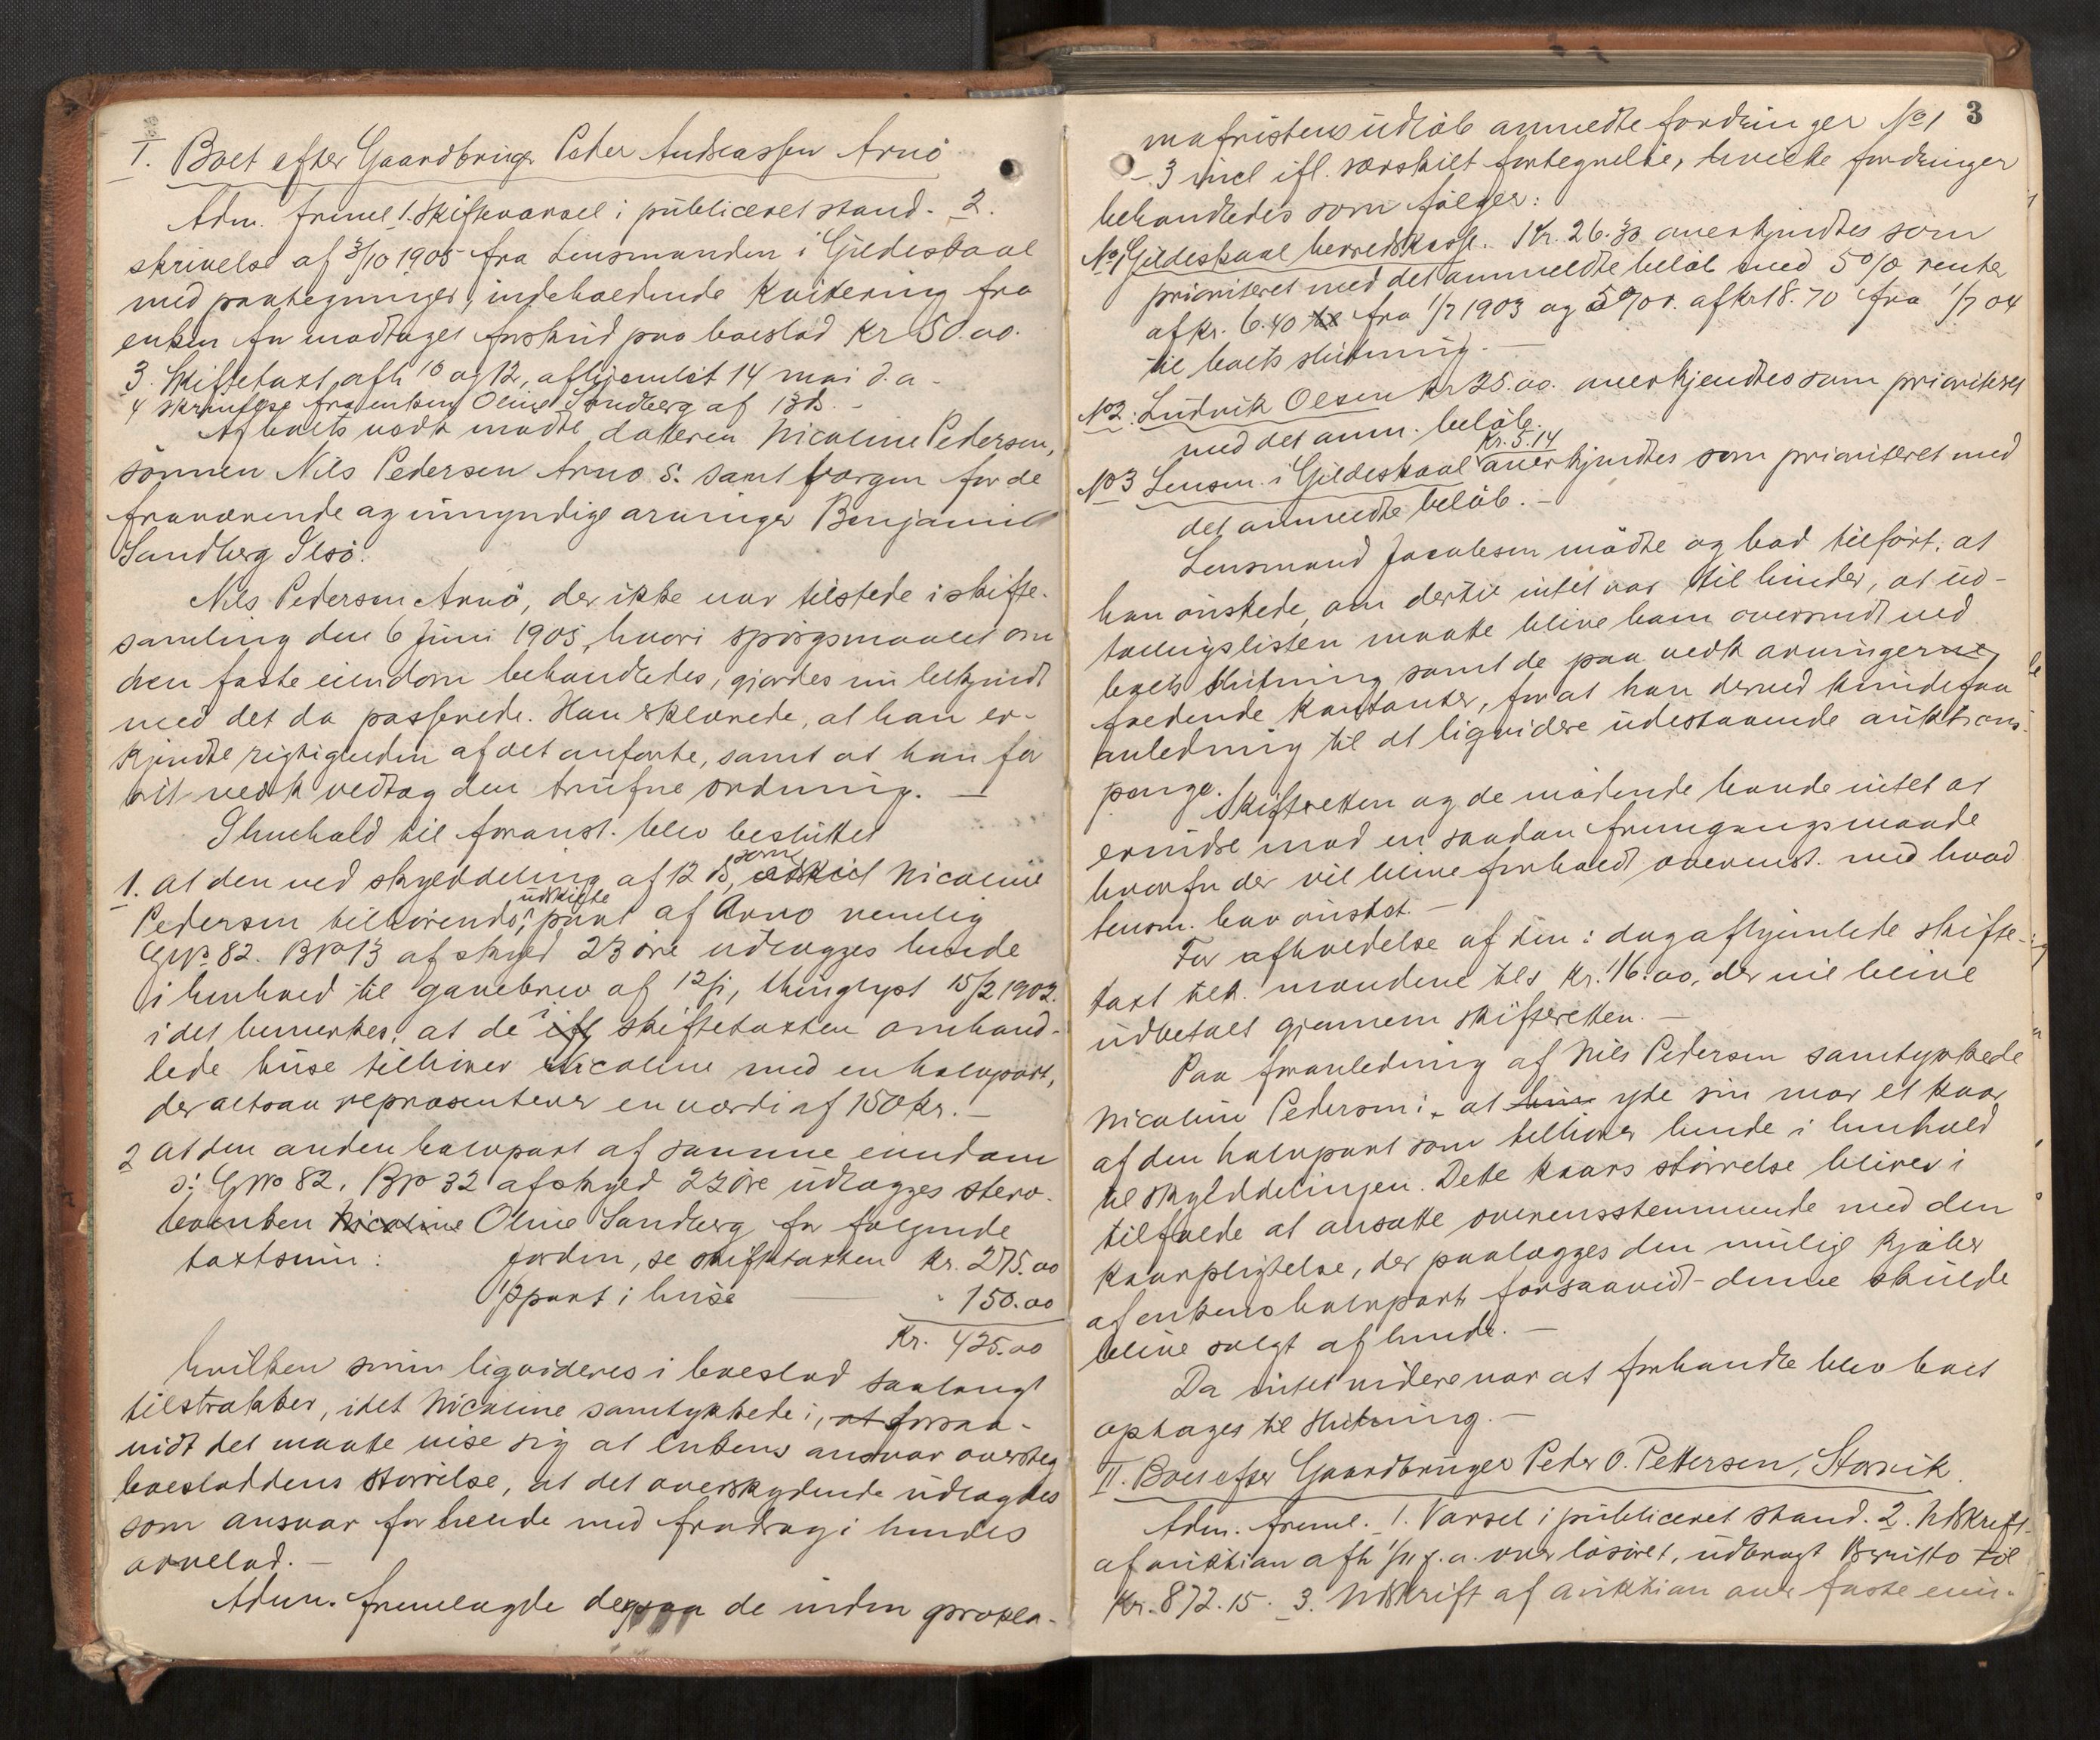 I. Boet efter Gaardbruger Peder Andreassen Arnö
Adm. freml. 1. Skiftevarsel i publiceret stand. 2.
skrivelse af 3/10 1905 fra Lensmanden i Gildeskaal
med paategninger, indeholdende kvitering fra
enken for modtaget forskud paa boeslod Kr 50.00.
3. Skiftetaxt afh 10 og 12, afhjemlet 14 mai d.a.
4 skrivelse fra enken Oline Sandberg af 13 ds. –
Af boets vedk mødte datteren Nicoline Pedersen,
sønnen Nils Pedersen Arnö s. samt værgen for de
fraværende og umyndige arvinger Benjamin
Sandberg
Nils Pedersen Arnö, der ikke var tilstede i skifte-
samling den 6 Juni 1905, hvori spørgsmaalet om
den faste eiendom behandledes, gjordes nu bekjendt
med det da passerede. Han erklærede, at han er-
kjendte rigtigheden af det anførte, samt at han for
sit vedk vedtog den trufne ordning. —
I henhold til foranst. blev besluttet
1. at den ved skylddeling af 12 ds, som Nicoline
Pedersen tilhørende, udskilte part af Arnö nemlig
GNo 82. BNo 13 af skyld 23 øre udlægges hende
i henhold til gavebrev af 12/1, thinglyst 15/2 1902.
idet bemerkes, at de i ifl skiftetaxten omhand-
lede huse tilhører Nicoline med en halvpart,
der altsaa repræsenterer en værdi af 150 kr. –
2 at den anden halvpart af samme eiendom
ɔ: GNo 82. BNo 32 af skyld 23 øre udlægges sterv-
boenken Nicoline Oline Sandberg for følgende
taxtsum: Jorden, se skiftetaxten Kr. 275.00
1/2 part i huse — " 150.00
Kr. 425.00
hvilken sum liqvideres i boeslod saalangt
tilstrækker, idet Nicoline samtykkede i, at forsaa-
vidt det maatte vise sig at enkens ansvar oversteg
boesloddens størrelse, at det overskydende udlagdes
som ansvar for hende med fradrag i hendes
arvelod. –
Adm. fremlagde derpaa de inden prokla-
3
mafristens udløb anmeldte fordringer No 1
– 3 incl ifl. særskilt fortegnelse, hvilke fordringer
behandledes som følger:
No 1 Gildeskaal herredskasse. Kr. 26.30 anerkjendtes som
prioriteret med det anmeldte beløb med 5% rente
af kr. 6.40 til fra 1/7 1903 og 5% r. af kr 18.70 fra 1/7 04
til boets slutning. —
No 2: Ludvik Olsen kr 25.00. anerkjendtes som prioriteret
med det anm. beløb.
No 3 Lensm. i Gildeskaal Kr. 5.14 anerkjendtes som prioriteret med
det anmeldte beløb. –
Lensmand Jacobsen mødte og bad tilført, at
han ønskede, om dertil intet var til hinder, at ud-
lodningslisten maatte blive ham oversendt ved
boets slutning samt de paa vedk arvingerne,
faldende kontanter, for at han derved kunde faa
anledning til at liqvidere udestaaende auktions-
penge. Skifteretten og de mødende havde intet at
erindre mod en saadan fremgangsmaade
hvorfor der vil blive forholdt overenst. med hvad
lensm. har ønsket. —
For afholdelse af den i dag afhjemlede skifte-
taxt tilk. mændene tils kr. 16.00, der vil blive
udbetalt gjennem skifteretten. —
Paa foranledning af Nils Pedersen samtykkede
Nicoline Pedersen i at yde sin mor et kaar
af den halvpart som tilhører hende i henhold
til skylddelingen. Dette kaars størrelse bliver i
tilfælde at ansætte overensstemmende med den
kaarpligtelse, der paalægges den mulige kjøber
af enkens halvpart forsaavidt denne skulde
blive solgt af hende. —
Da intet videre var at forhandle blev boet
optaget til slutning. —
II. Boet efter Gaardbruger Peder O. Pettersen, Storvik.
Adm. freml. 1. Varsel i publiceret stand. 2. Udskrift
af auktion afh 1/11 f.a. over løsøret, udbragt Brutto til
Kr. 872.15. 3. Udskrift af auktion over faste eien-